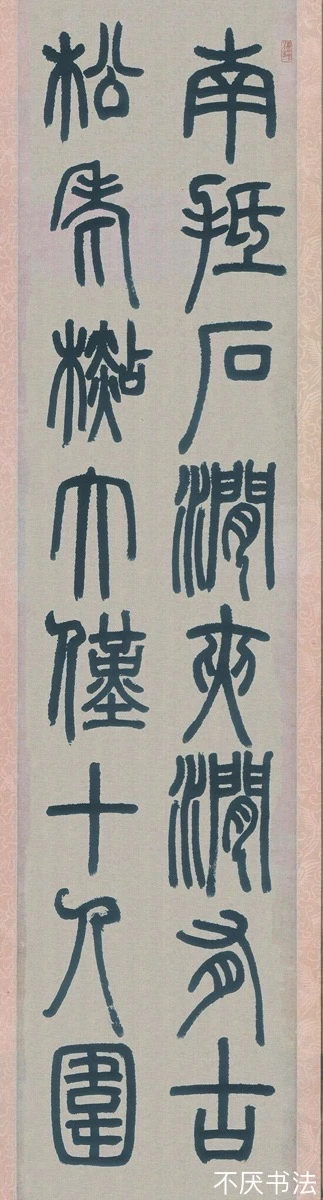 南抵石澗夾澗有古
松老檆大僅十人圍
不厌书法